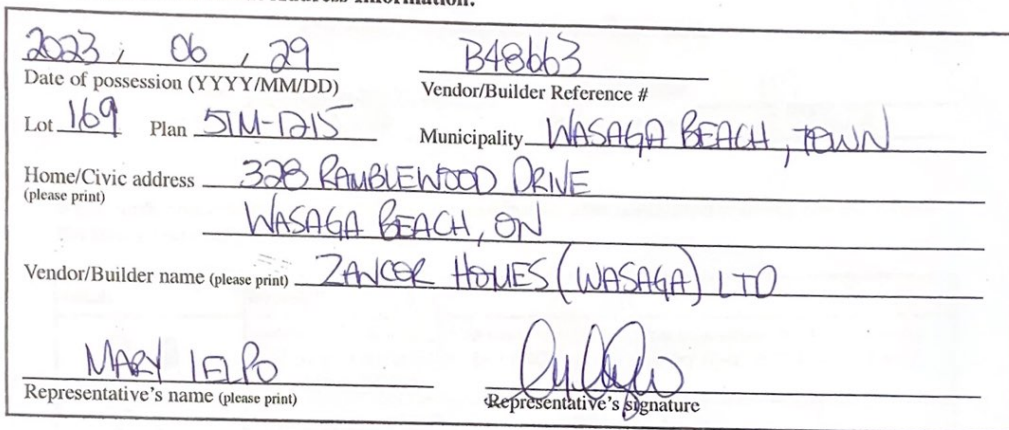 Address Information:
2023, 06, 29 B48663
Date of possession (YYYY/MM/DD) Vendor/Builder Reference #
Lot 169 Plan 51M-1215 Municipality WASAGA BEACH, TOWN
Home/Civic address 328 RAMBLEWOOD DRIVE
(please print)
WASAGA BEACH, ON
Vendor/Builder name (please print) ZANCOR HOMES (WASAGA) LTD
MARY IELPO
Representative's name (please print) Representative's signature